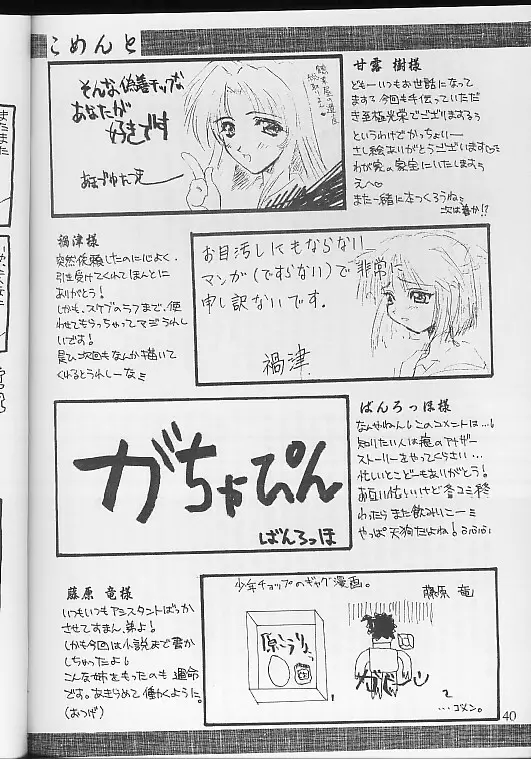 こめんと
そんな偽善チップな
あなたが
好きです
甘露 樹様
どもーいつもお世話になって
ますう 今回も手伝っていただ
き至極光栄でございまするぅ
というわけでかっちょいー
さし絵ありがとうございます
わが家の家宝にいたしますぅ
えへ
また一緒に本つくろうね
次は春か!?
禍津様
突然依頼したのに心よく
引き受けてくれてほんとに
ありがとう!
しかも、スケブのラフまで、使
わせてもらっちゃってマジうれし
いです!
是ひ次回もなんか描いて
くれるとうれしーなミ
お目汚しにもならない
マンガ(ですらない)で 非常に
申し訳ないです.
禍津
ばんろっほ様
なんやねん!このコメントは…!
知りたい人は俺のアナザー
ストーリーをやってくらさい…
忙しいとこどーもありがとう!
お互い忙しいけど冬コミ終
わったらまた飲みにこーミ
やっぱ天狗だよね!ふふふ
がちゃぴん
ばんろっほ
藤原 竜様
いつもいつもアシスタントばっか
させてすまん、弟よ!
しかも今回は小説まで書か
しちゃったよ!
こんな姉をもったのも運命
です。あきらめて働くように。
(おつげ)
少年チョップのギャグ漫画。
藤原 竜
1
2
…コメン。
40